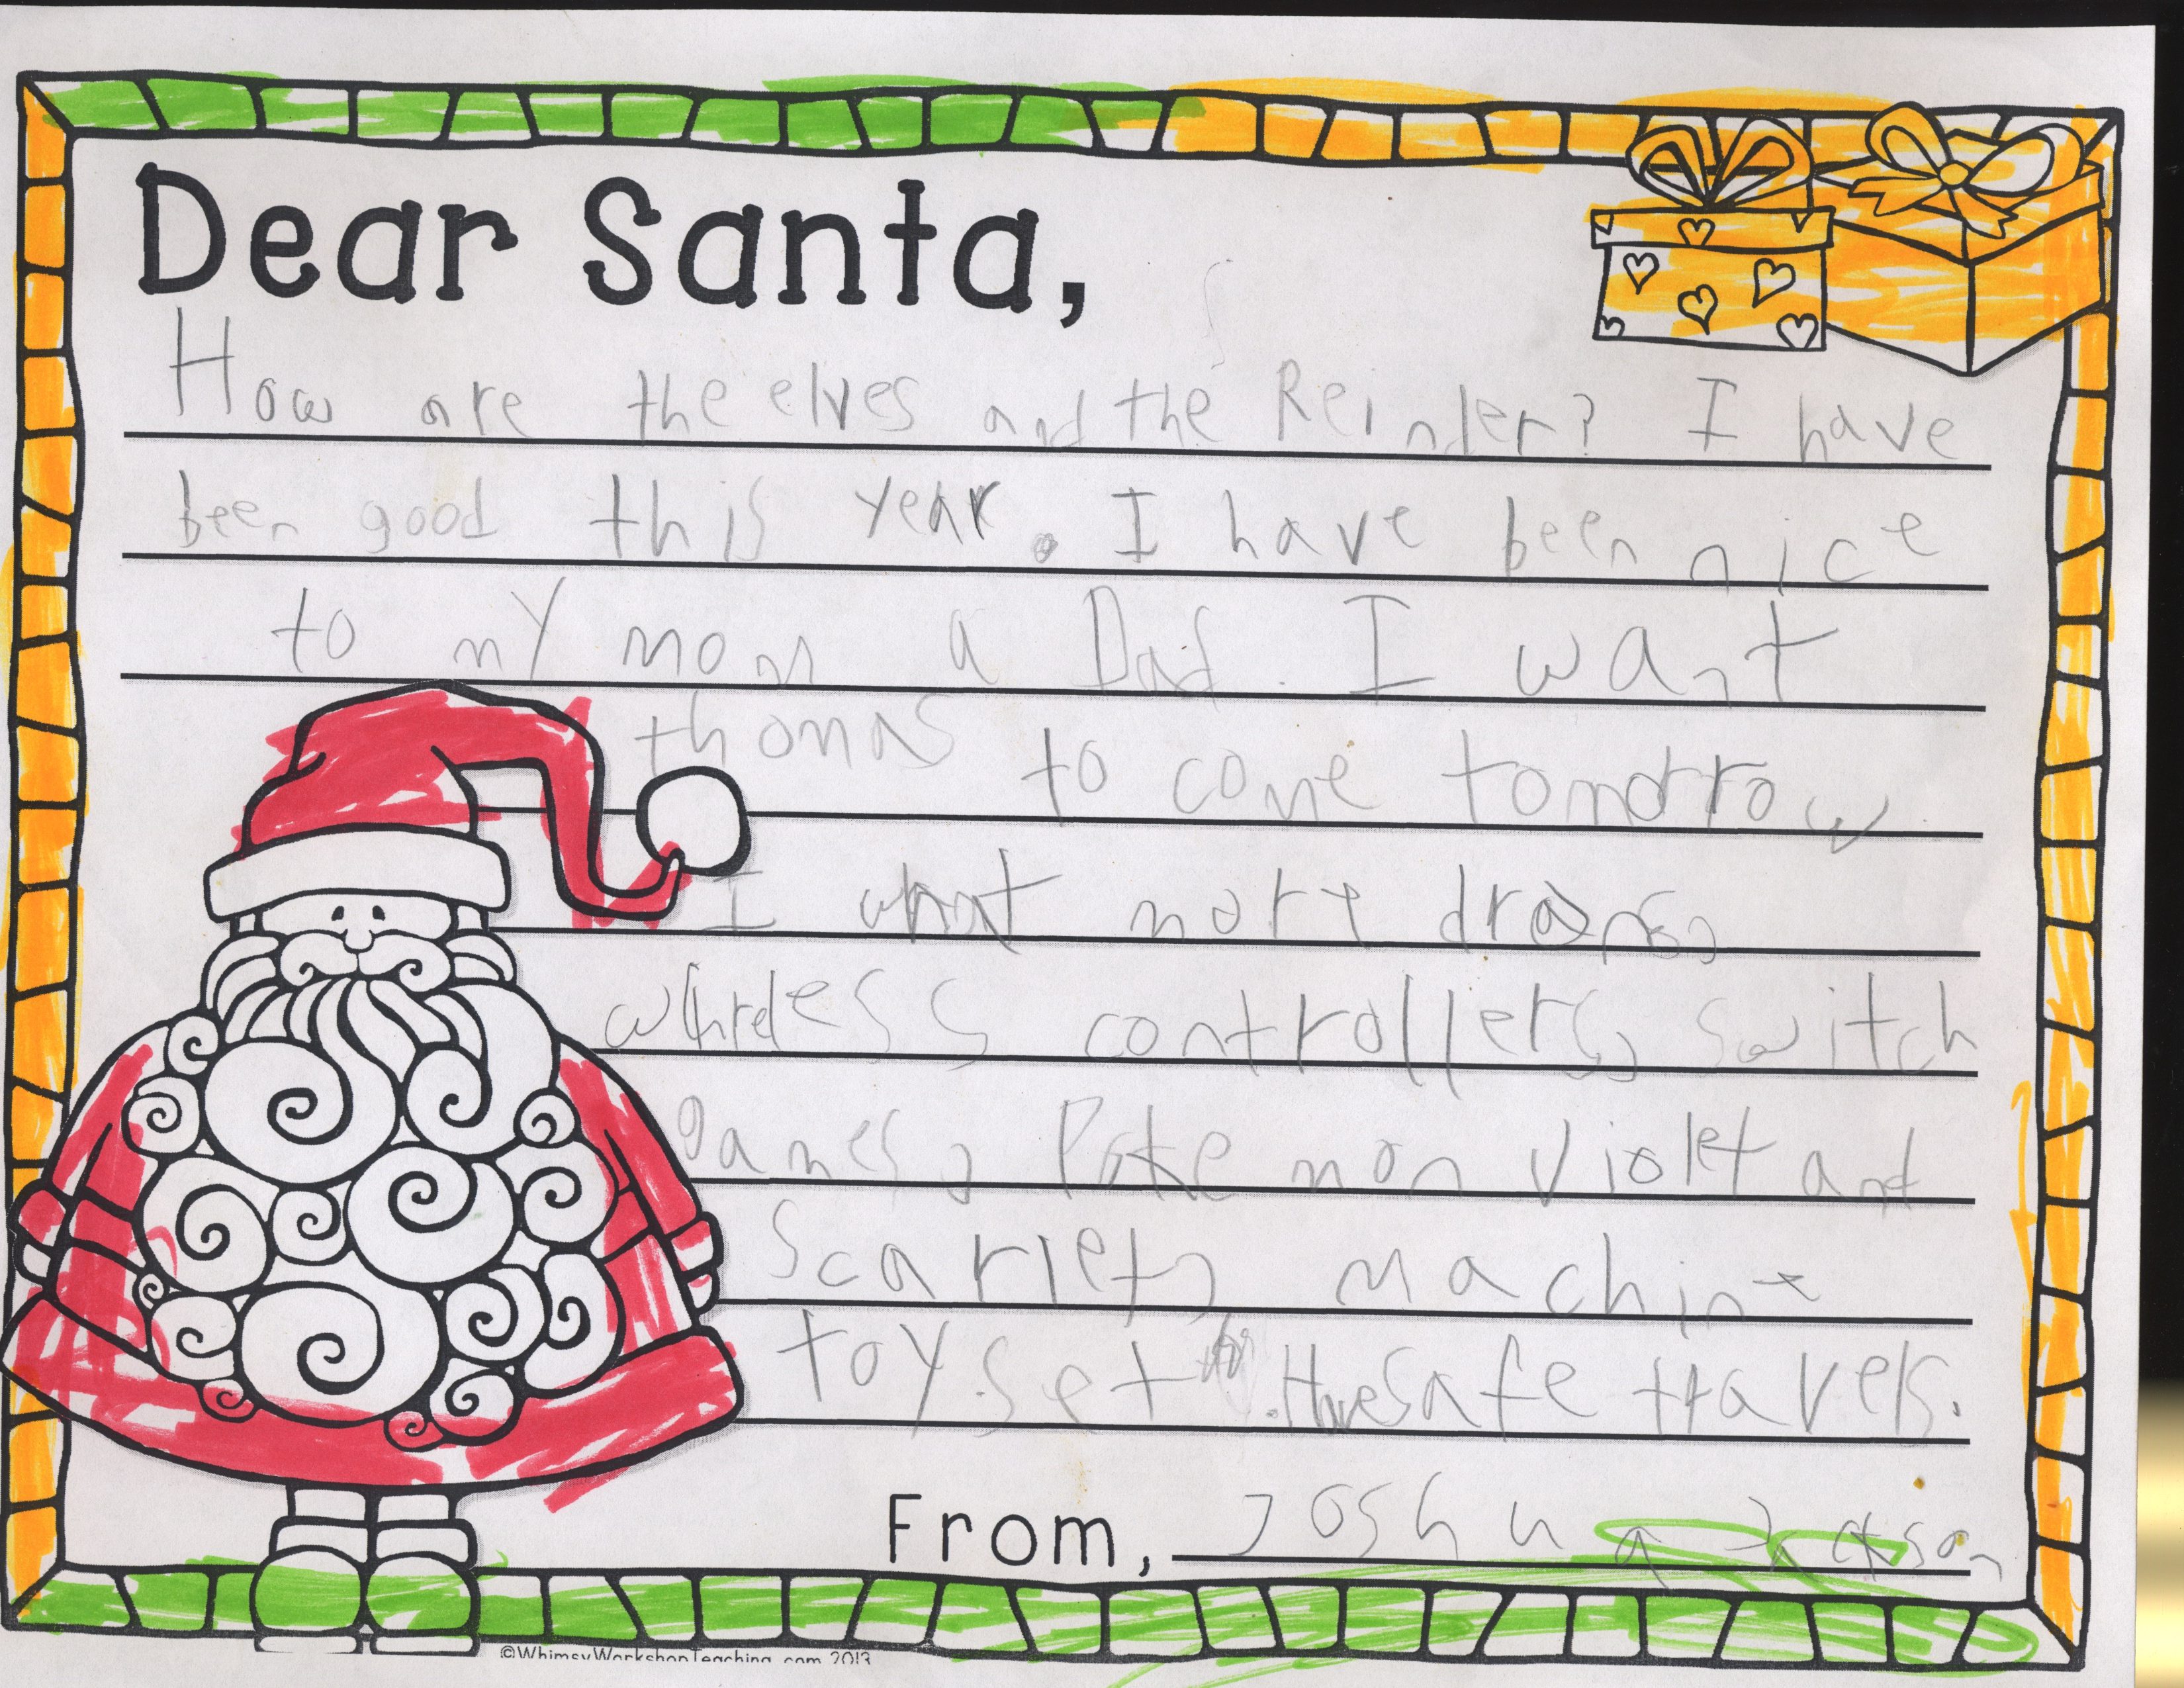 Dear Santa,
How are the elves and the Reinder? I have
been good this year. I have been nice
to my mom a Dad. I want
thomas to come tomorrow
I want more
controllers, switch
games, Pokemon Violet and
Scarlet, machine
toy set . Have safe travels.
From, Joshua Jackson
©WhimsyWorkshopTeaching.com 2013